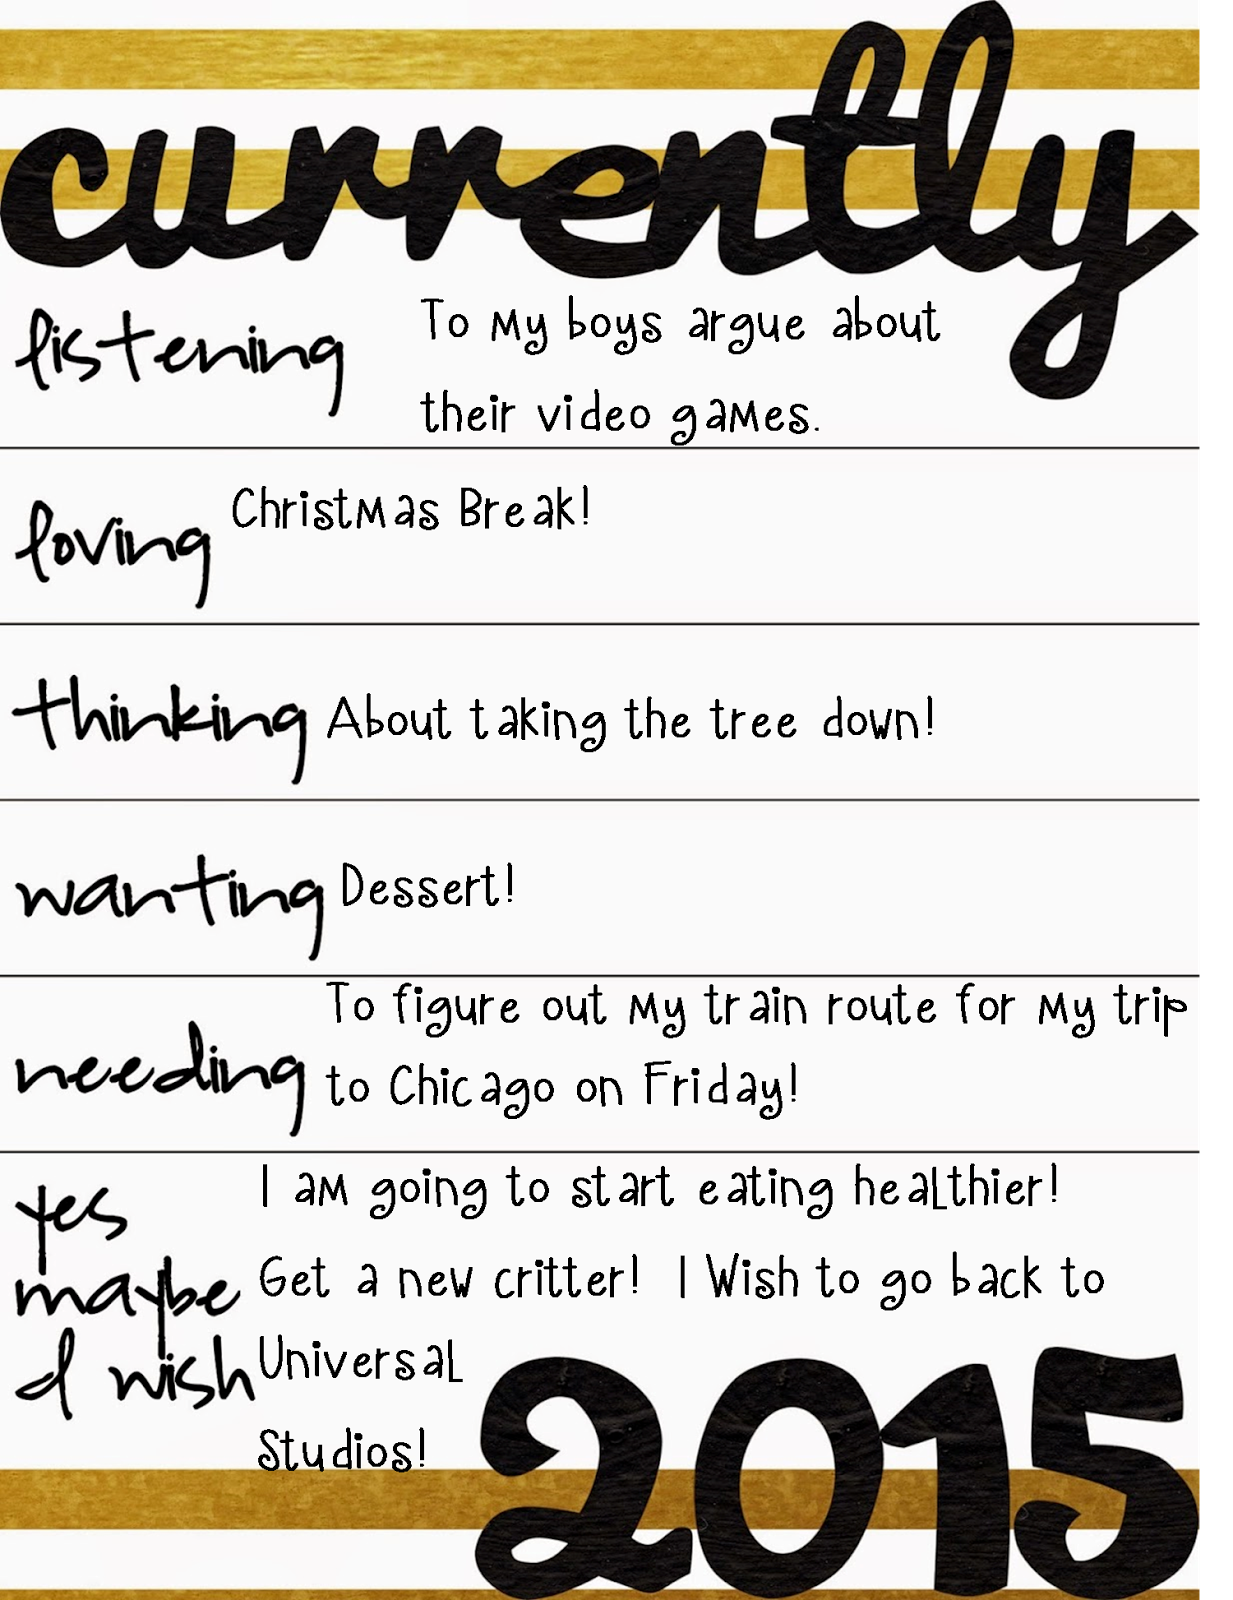 currently
listening
To my boys argue about
their video games.
loving
Christmas Break!
thinking
About taking the tree down!
wanting
Dessert!
needing
To figure out my train route for my trip
to Chicago on Friday!
yes
I am going to start eating healthier!
maybe
Get a new critter!  I Wish to go back to
I wish
Universal
Studios!
2015